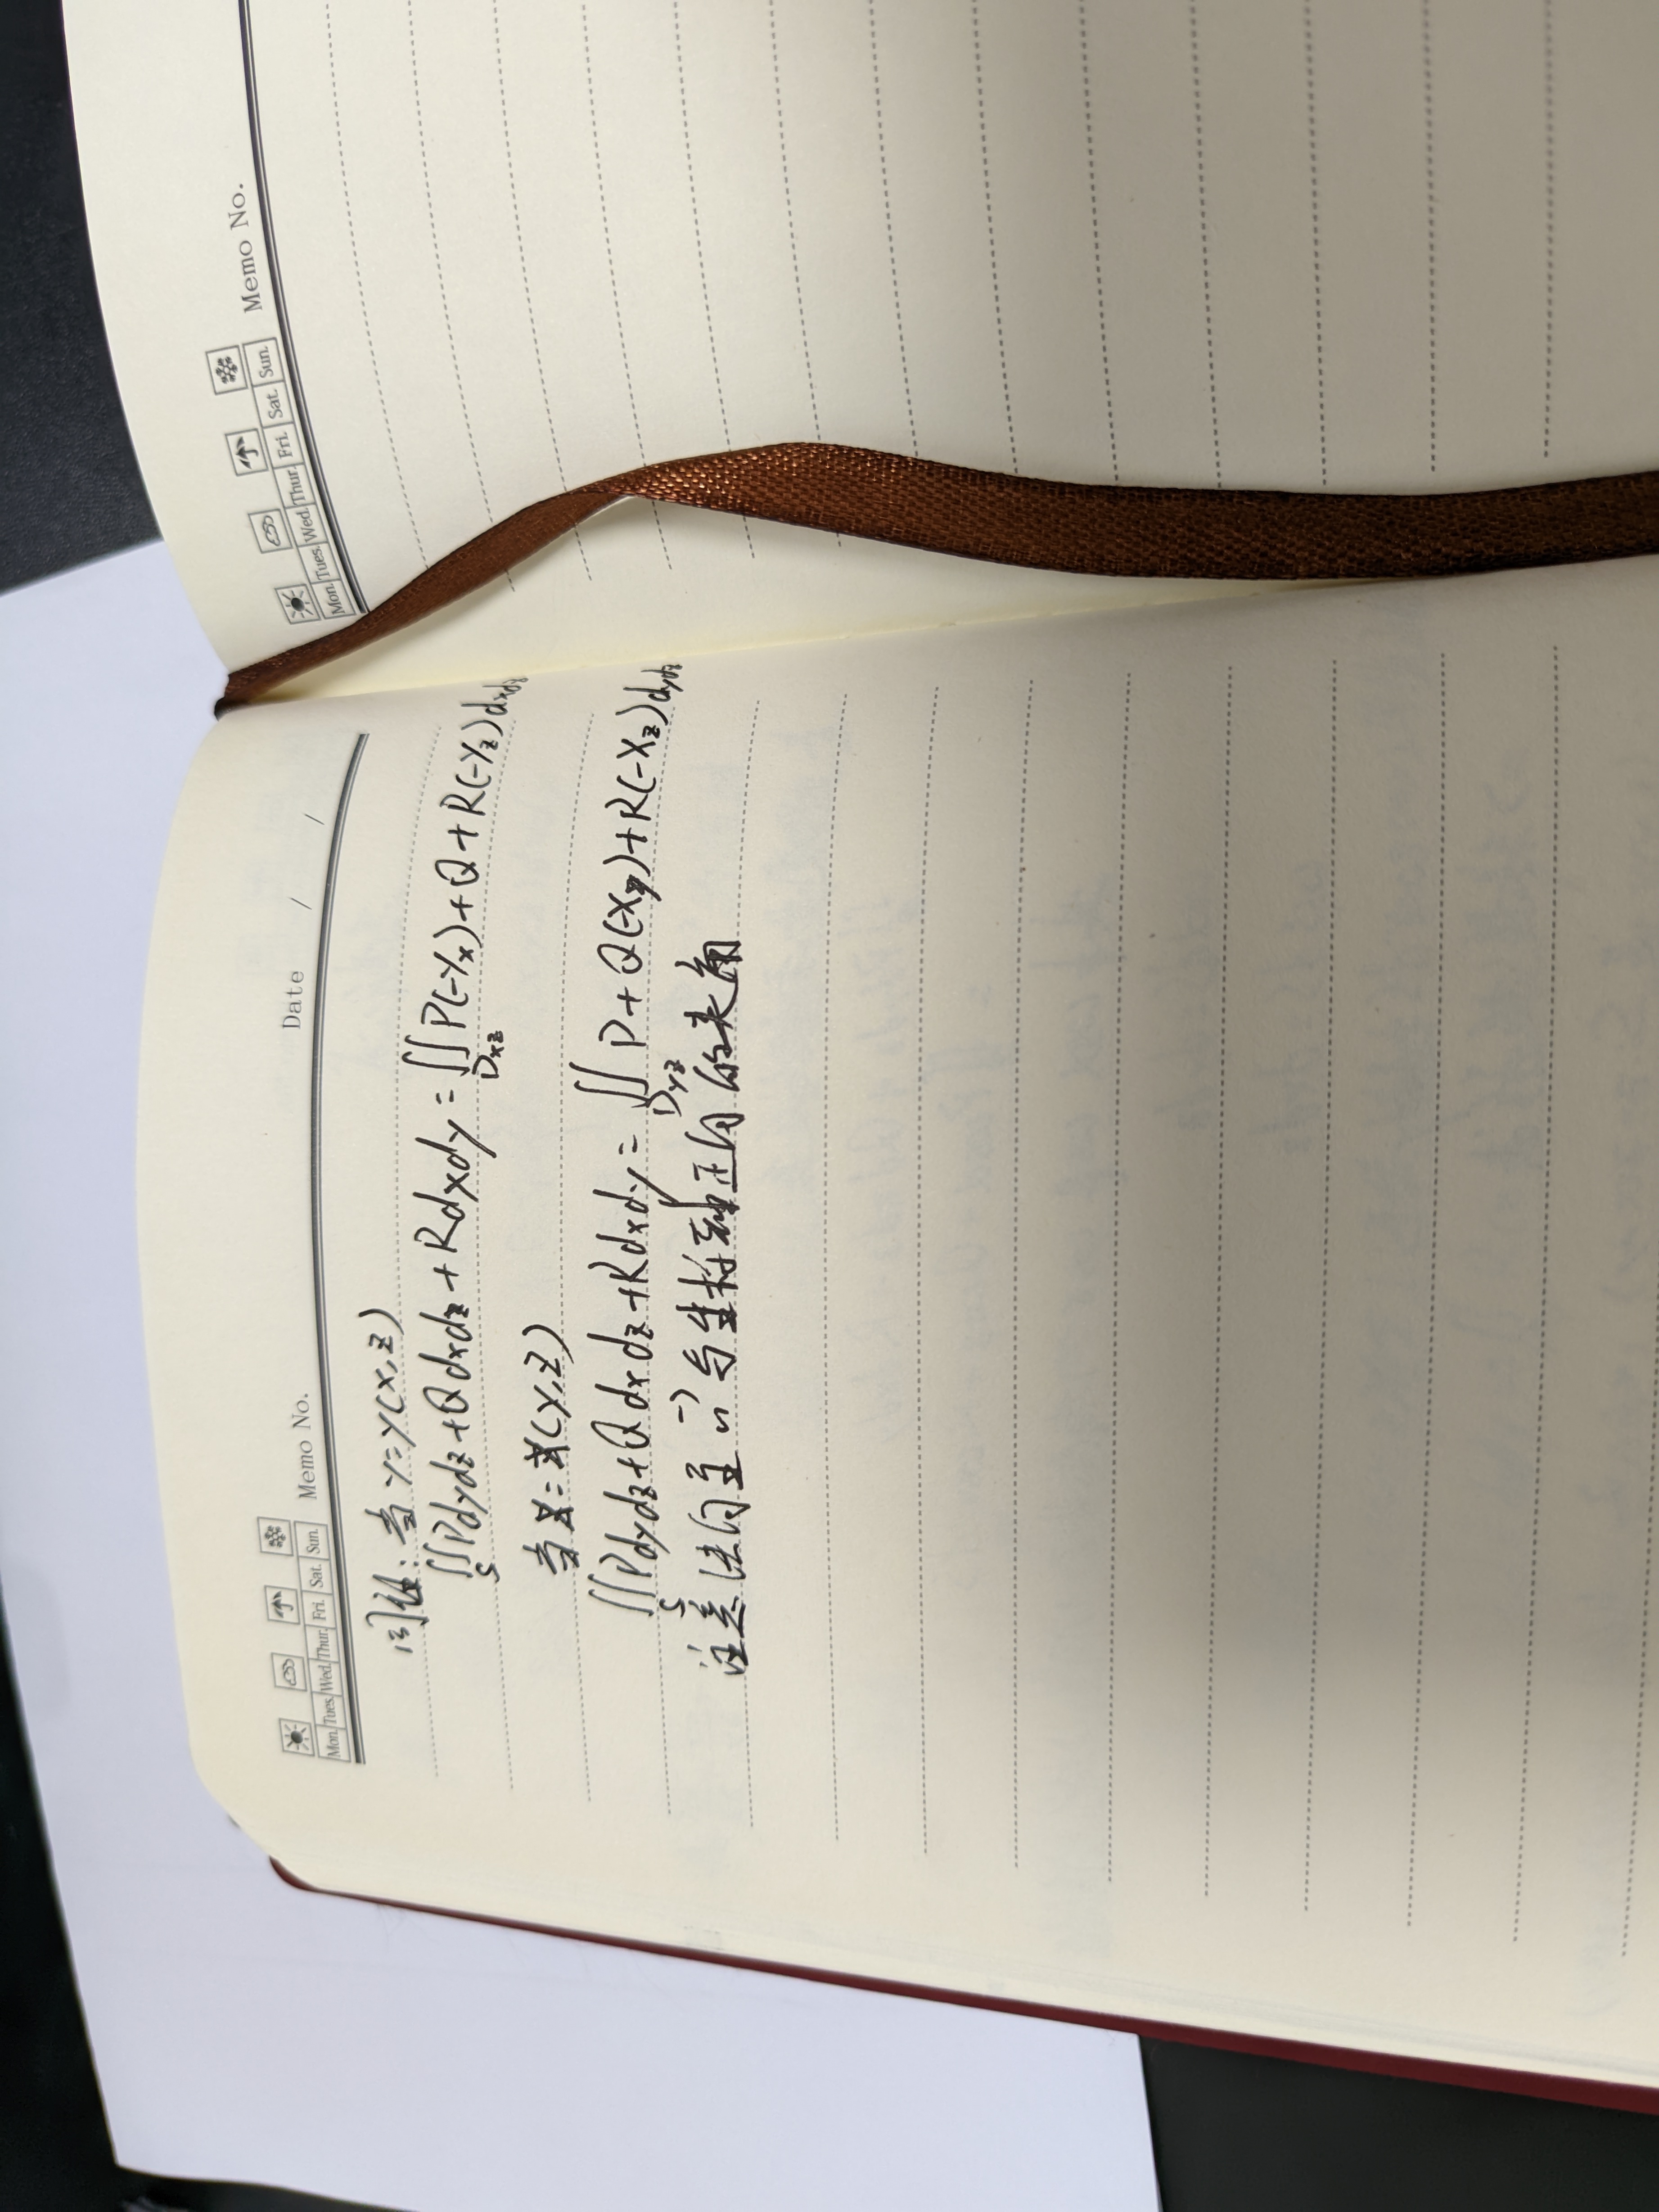 Mon. Tues. Wed. Thur. Fri. Sat. Sun.
Memo No.
Date / /
同理：当 y=y(x,z)
∬_S Pdydz+Qdxdz+Rdxdy=∬_{Dxz} P(-y_x)+Q+R(-y_z)dxdz
当x=x(y,z)
∬_S Pdydz+Qdxdz+Rdxdy=∬_{Dyz} P+Q(-x_y)+R(-x_z)dydz
注意法向量 n⃗ 与坐标轴正向的夹角
Mon. Tues. Wed. Thur. Fri. Sat. Sun.
Memo No.